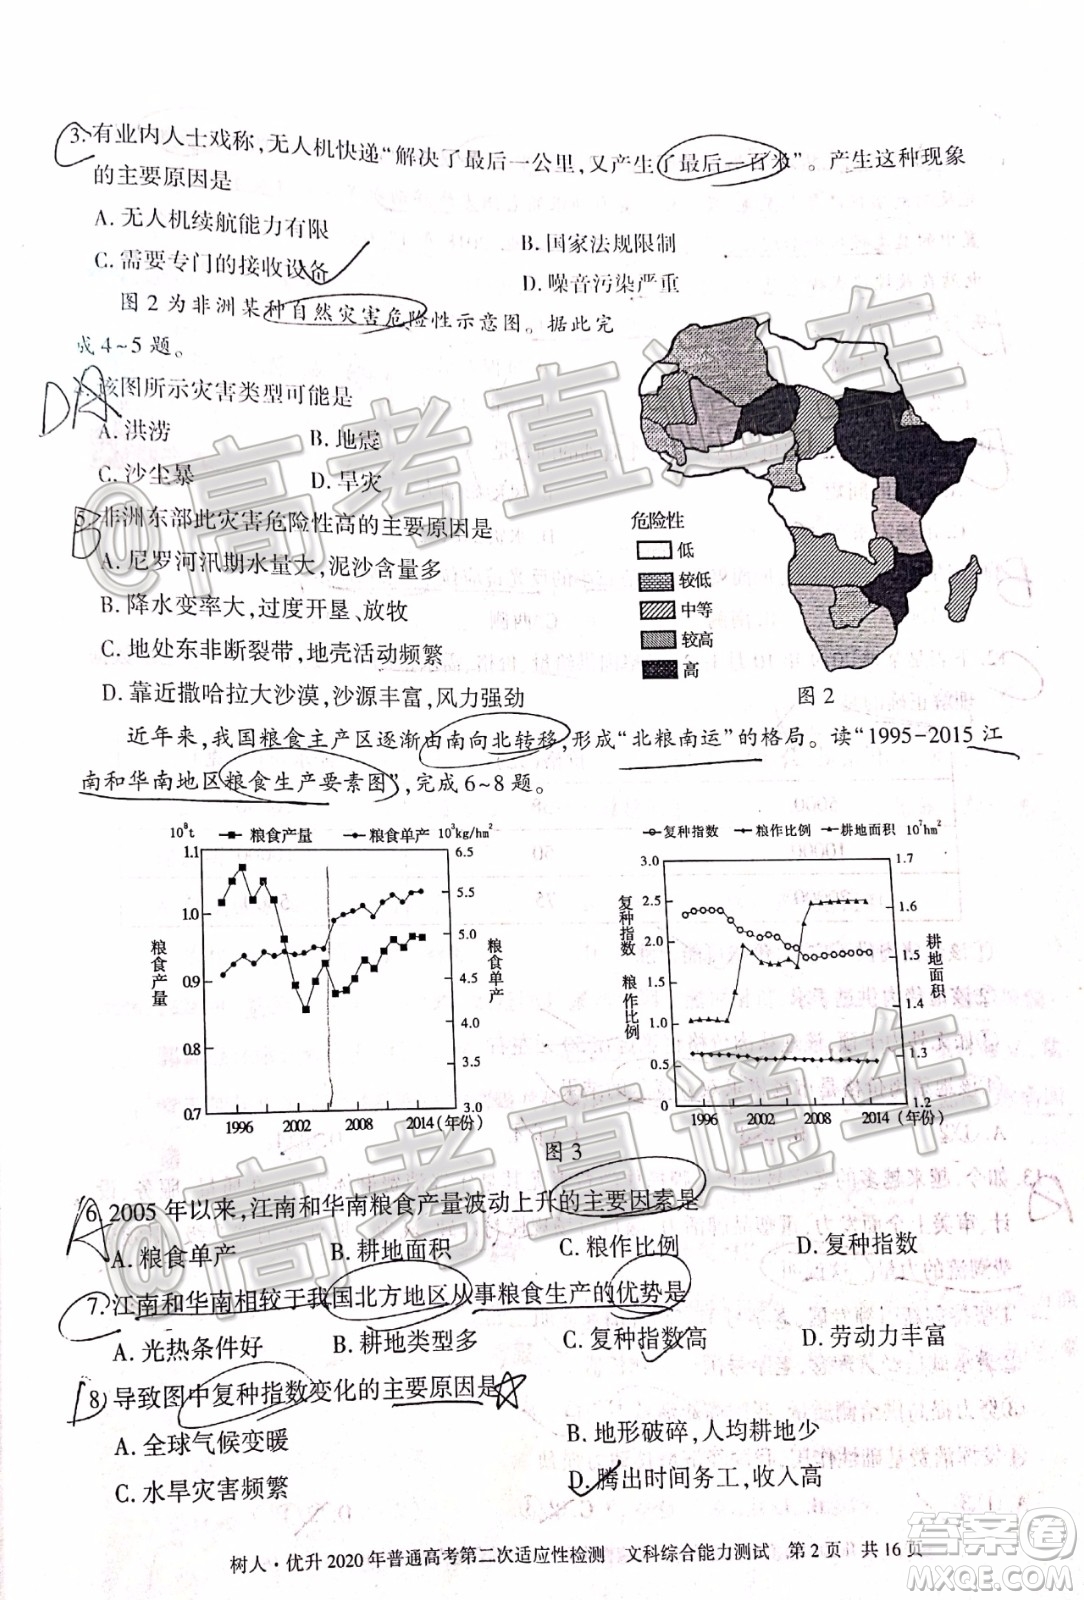 3. 有业内人士戏称，无人机快递“解决了最后一公里，又产生了最后一百米”。产生这种现象
的主要原因是
A. 无人机续航能力有限
B. 国家法规限制
C. 需要专门的接收设备
D. 噪音污染严重
图 2 为非洲某种自然灾害危险性示意图。据此完
成 4~5 题。
DA
4. 该图所示灾害类型可能是
A. 洪涝
B. 地震
C. 沙尘暴
D. 旱灾
B
5. 非洲东部此灾害危险性高的主要原因是
A. 尼罗河汛期水量大，泥沙含量多
B. 降水变率大，过度开垦、放牧
C. 地处东非断裂带，地壳活动频繁
D. 靠近撒哈拉大沙漠，沙源丰富，风力强劲
危险性
低
较低
中等
较高
高
图 2
近年来，我国粮食主产区逐渐由南向北转移，形成“北粮南运”的格局。读“1995-2015 江
南和华南地区粮食生产要素图”，完成 6~8 题。
10⁸t 粮食产量 粮食单产 10³kg/hm²
1.1
1.0
0.9
0.8
0.7
粮食产量
6.5
5.5
5.0
4.5
4.0
3.0
粮食单产
1996 2002 2008 2014 (年份)
复种指数 粮作比例 耕地面积 10⁷hm²
3.0
2.5
2.0
1.5
1.0
0.5
0
复种指数 粮作比例
1.7
1.6
1.5
1.4
1.3
1.2
耕地面积
1996 2002 2008 2014 (年份)
图 3
A
6. 2005 年以来，江南和华南粮食产量波动上升的主要因素是
A. 粮食单产
B. 耕地面积
C. 粮作比例
D. 复种指数
7. 江南和华南相较于我国北方地区从事粮食生产的优势是
A. 光热条件好
B. 耕地类型多
C. 复种指数高
D. 劳动力丰富
D
8. 导致图中复种指数变化的主要原因是
A. 全球气候变暖
B. 地形破碎，人均耕地少
C. 水旱灾害频繁
D. 腾出时间务工，收入高
树人·优升 2020 年普通高考第二次适应性检测 文科综合能力测试 第 2 页 共 16 页
@高考直通车
@高考直通车
答案圈
MXQE.COM